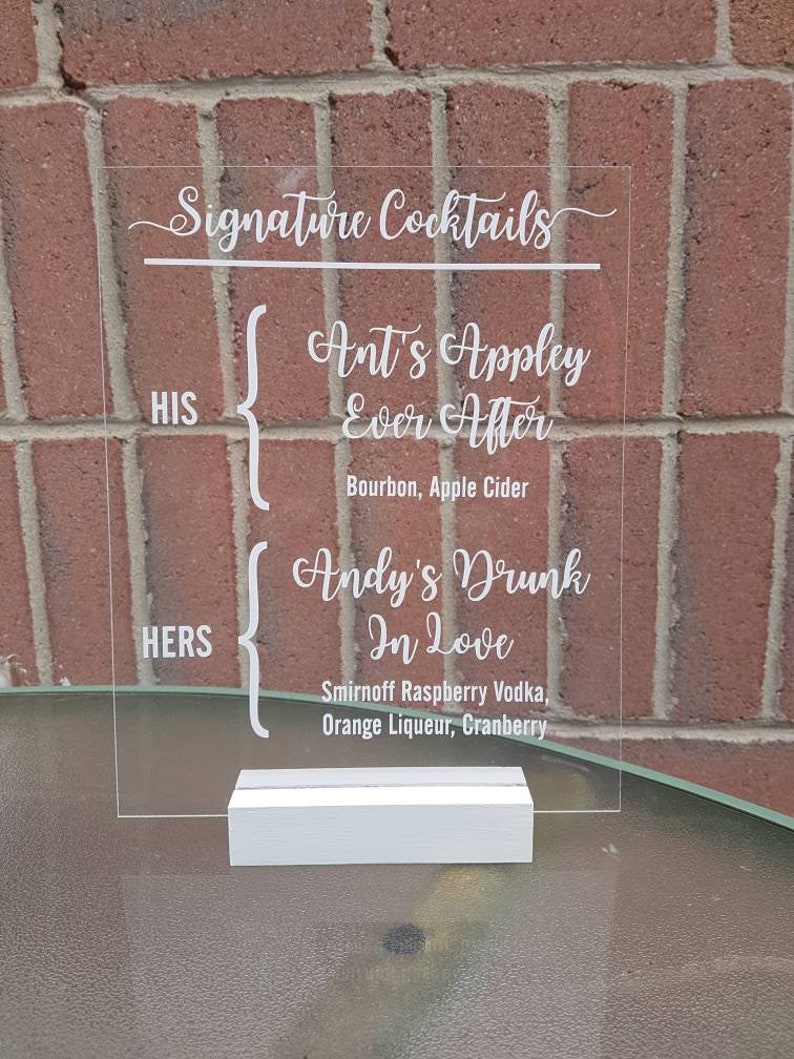 Signature Cocktails
HIS
Ant's Appley
Ever After
Bourbon, Apple Cider
HERS
Andy's Drunk
In Love
Smirnoff Raspberry Vodka,
Orange Liqueur, Cranberry